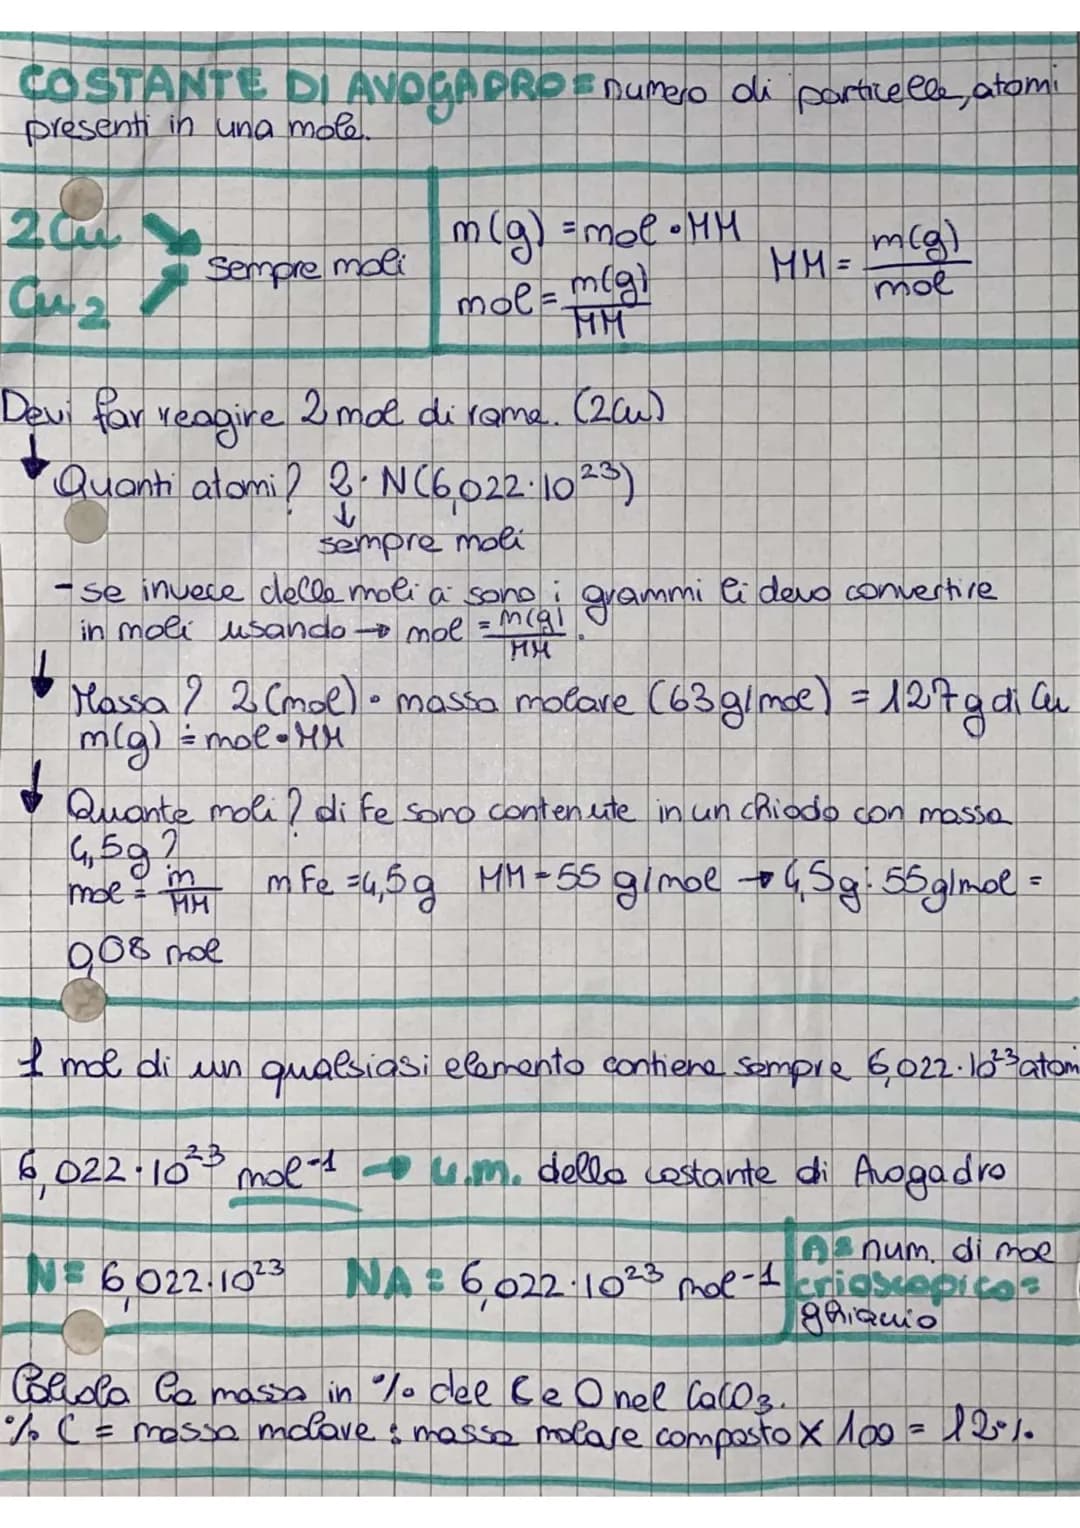 COSTANTE DI AVOGADRO= numero di particelle, atomi
presenti in una mole.
2Cu
Cu2
sempre moli
m(g) = mol • MM
mol = m(g)/MM
MM = m(g)/mol
Devi far reagire 2 mol di rame. (2Cu)
Quanti atomi? 2 · N(6,022·10²³)
↓
sempre moli
- se invece delle moli ci sono i grammi li devo convertire
in moli usando → mol = m(g)/MM.
Massa? 2 (mol) • massa molare (63 g/mol) = 127g di Cu
m(g) = mol • MM
Quante moli? di Fe sono contenute in un chiodo con massa
4,5g?
mol = m/MM m Fe = 4,5g MM = 55 g/mol → 4,5g : 55g/mol =
0,08 mol
1 mol di un qualsiasi elemento contiene sempre 6,022·10²³ atomi
6,022·10²³ mol⁻¹ → u.m. della costante di Avogadro
N= 6,022·10²³ NA = 6,022·10²³ mol⁻¹
n= num. di mol
crioscopico=
ghiaccio
Calcola la massa in % del C e O nel CaCO₃.
% C = massa molare : massa molare composto x 100 = 12%.